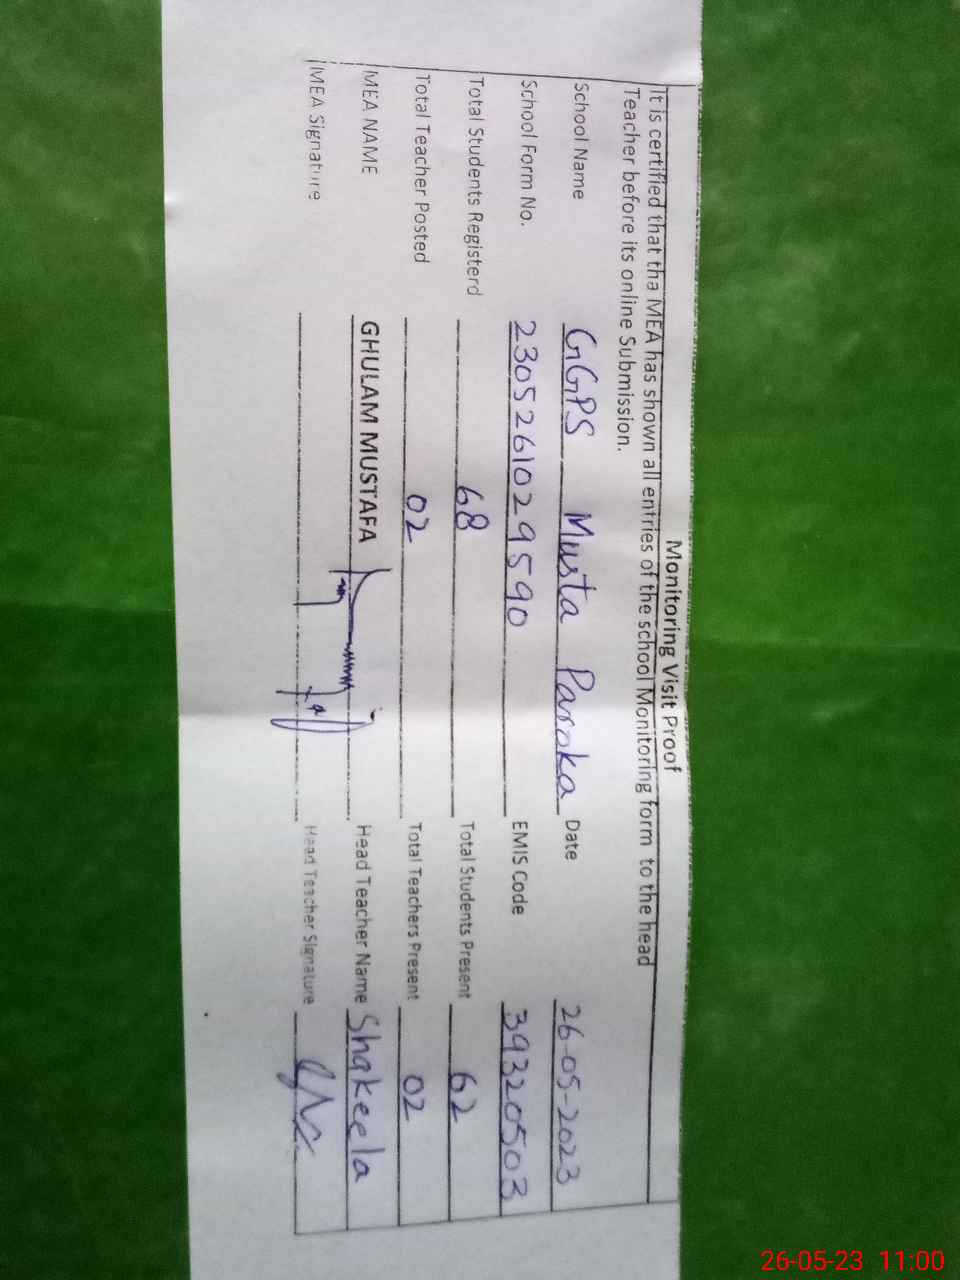 Monitoring Visit Proof
It is certified that tha MEA has shown all entries of the school Monitoring form to the head
Teacher before its online Submission.
School Name GGPS Musta Paroka Date 26-05-2023
School Form No. 230526102 9590 EMIS Code 39320503
Total Students Registerd 68 Total Students Present 62
Total Teacher Posted 02 Total Teachers Present 02
MEA NAME GHULAM MUSTAFA Head Teacher Name Shakeela
MEA Signature Head Teacher Signature
26-05-23 11:00